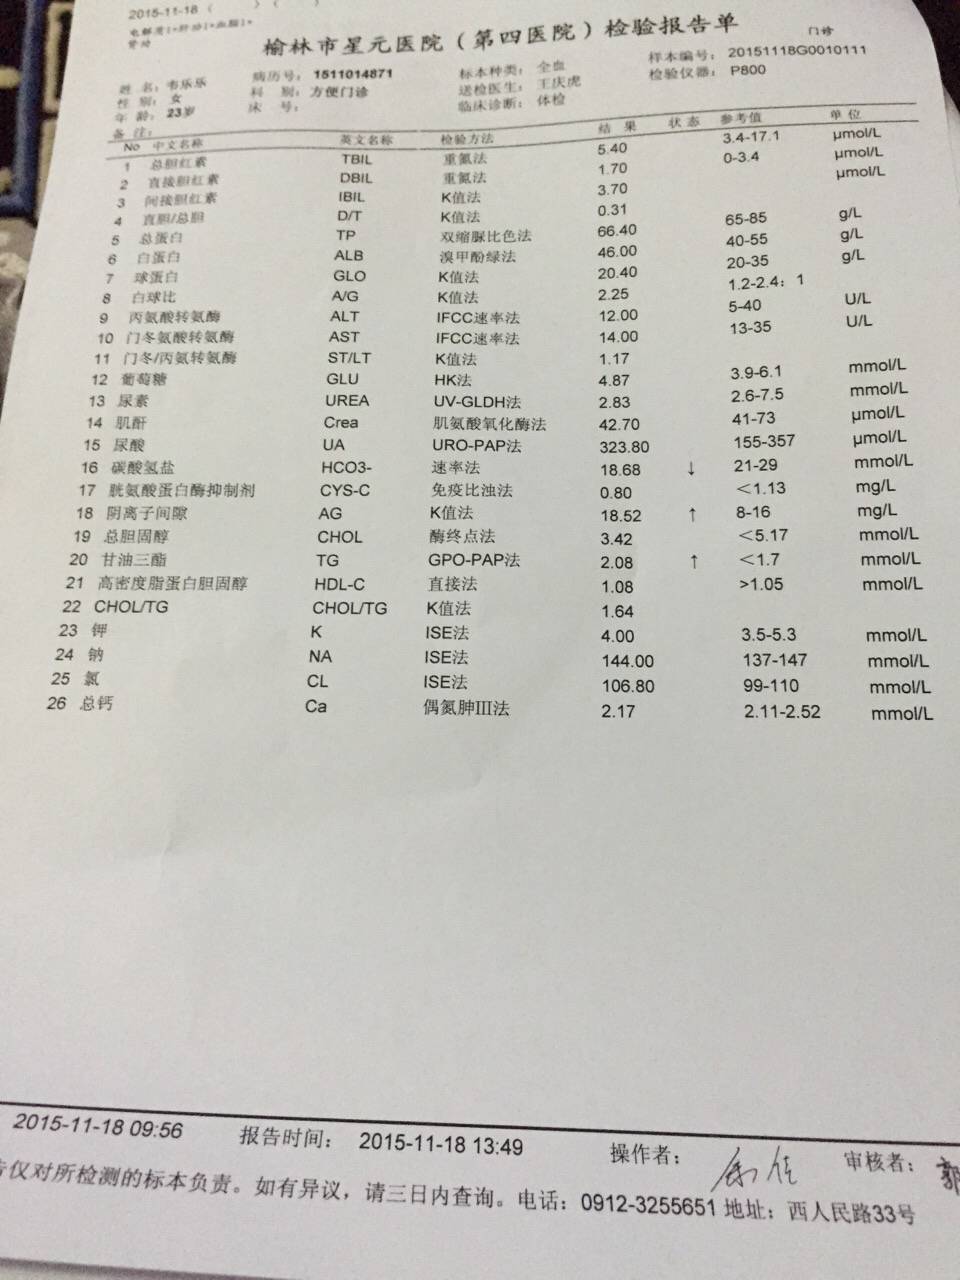 2015-11-18 ( ) (
电解质1+肝功1+血脂1+
肾功
榆林市星元医院(第四医院)检验报告单
门诊
姓 名: 韦乐乐 病历号: 1511014871 标本种类: 全血 样本编号: 20151118G0010111
性 别: 女 科 别: 方便门诊 送检医生: 王庆虎 检验仪器: P800
年 龄: 23岁 床 号: 临床诊断: 体检
备 注:
No 中文名称 英文名称 检验方法 结 果 状 态 参考值 单 位
1 总胆红素 TBIL 重氮法 5.40 3.4-17.1 µmol/L
2 直接胆红素 DBIL 重氮法 1.70 0-3.4 µmol/L
3 间接胆红素 IBIL K值法 3.70 µmol/L
4 直胆/总胆 D/T K值法 0.31
5 总蛋白 TP 双缩脲比色法 66.40 65-85 g/L
6 白蛋白 ALB 溴甲酚绿法 46.00 40-55 g/L
7 球蛋白 GLO K值法 20.40 20-35 g/L
8 白球比 A/G K值法 2.25 1.2-2.4:1
9 丙氨酸转氨酶 ALT IFCC速率法 12.00 5-40 U/L
10 门冬氨酸转氨酶 AST IFCC速率法 14.00 13-35 U/L
11 门冬/丙氨转氨酶 ST/LT K值法 1.17
12 葡萄糖 GLU HK法 4.87 3.9-6.1 mmol/L
13 尿素 UREA UV-GLDH法 2.83 2.6-7.5 mmol/L
14 肌酐 Crea 肌氨酸氧化酶法 42.70 41-73 µmol/L
15 尿酸 UA URO-PAP法 323.80 155-357 µmol/L
16 碳酸氢盐 HCO3- 速率法 18.68 ↓ 21-29 mmol/L
17 胱氨酸蛋白酶抑制剂 CYS-C 免疫比浊法 0.80 <1.13 mg/L
18 阴离子间隙 AG K值法 18.52 ↑ 8-16 mg/L
19 总胆固醇 CHOL 酶终点法 3.42 <5.17 mmol/L
20 甘油三酯 TG GPO-PAP法 2.08 ↑ <1.7 mmol/L
21 高密度脂蛋白胆固醇 HDL-C 直接法 1.08 >1.05 mmol/L
22 CHOL/TG CHOL/TG K值法 1.64
23 钾 K ISE法 4.00 3.5-5.3 mmol/L
24 钠 NA ISE法 144.00 137-147 mmol/L
25 氯 CL ISE法 106.80 99-110 mmol/L
26 总钙 Ca 偶氮胂III法 2.17 2.11-2.52 mmol/L
2015-11-18 09:56 报告时间: 2015-11-18 13:49 操作者: 审核者:
告仅对所检测的标本负责。如有异议,请三日内查询。电话:0912-3255651 地址:西人民路33号